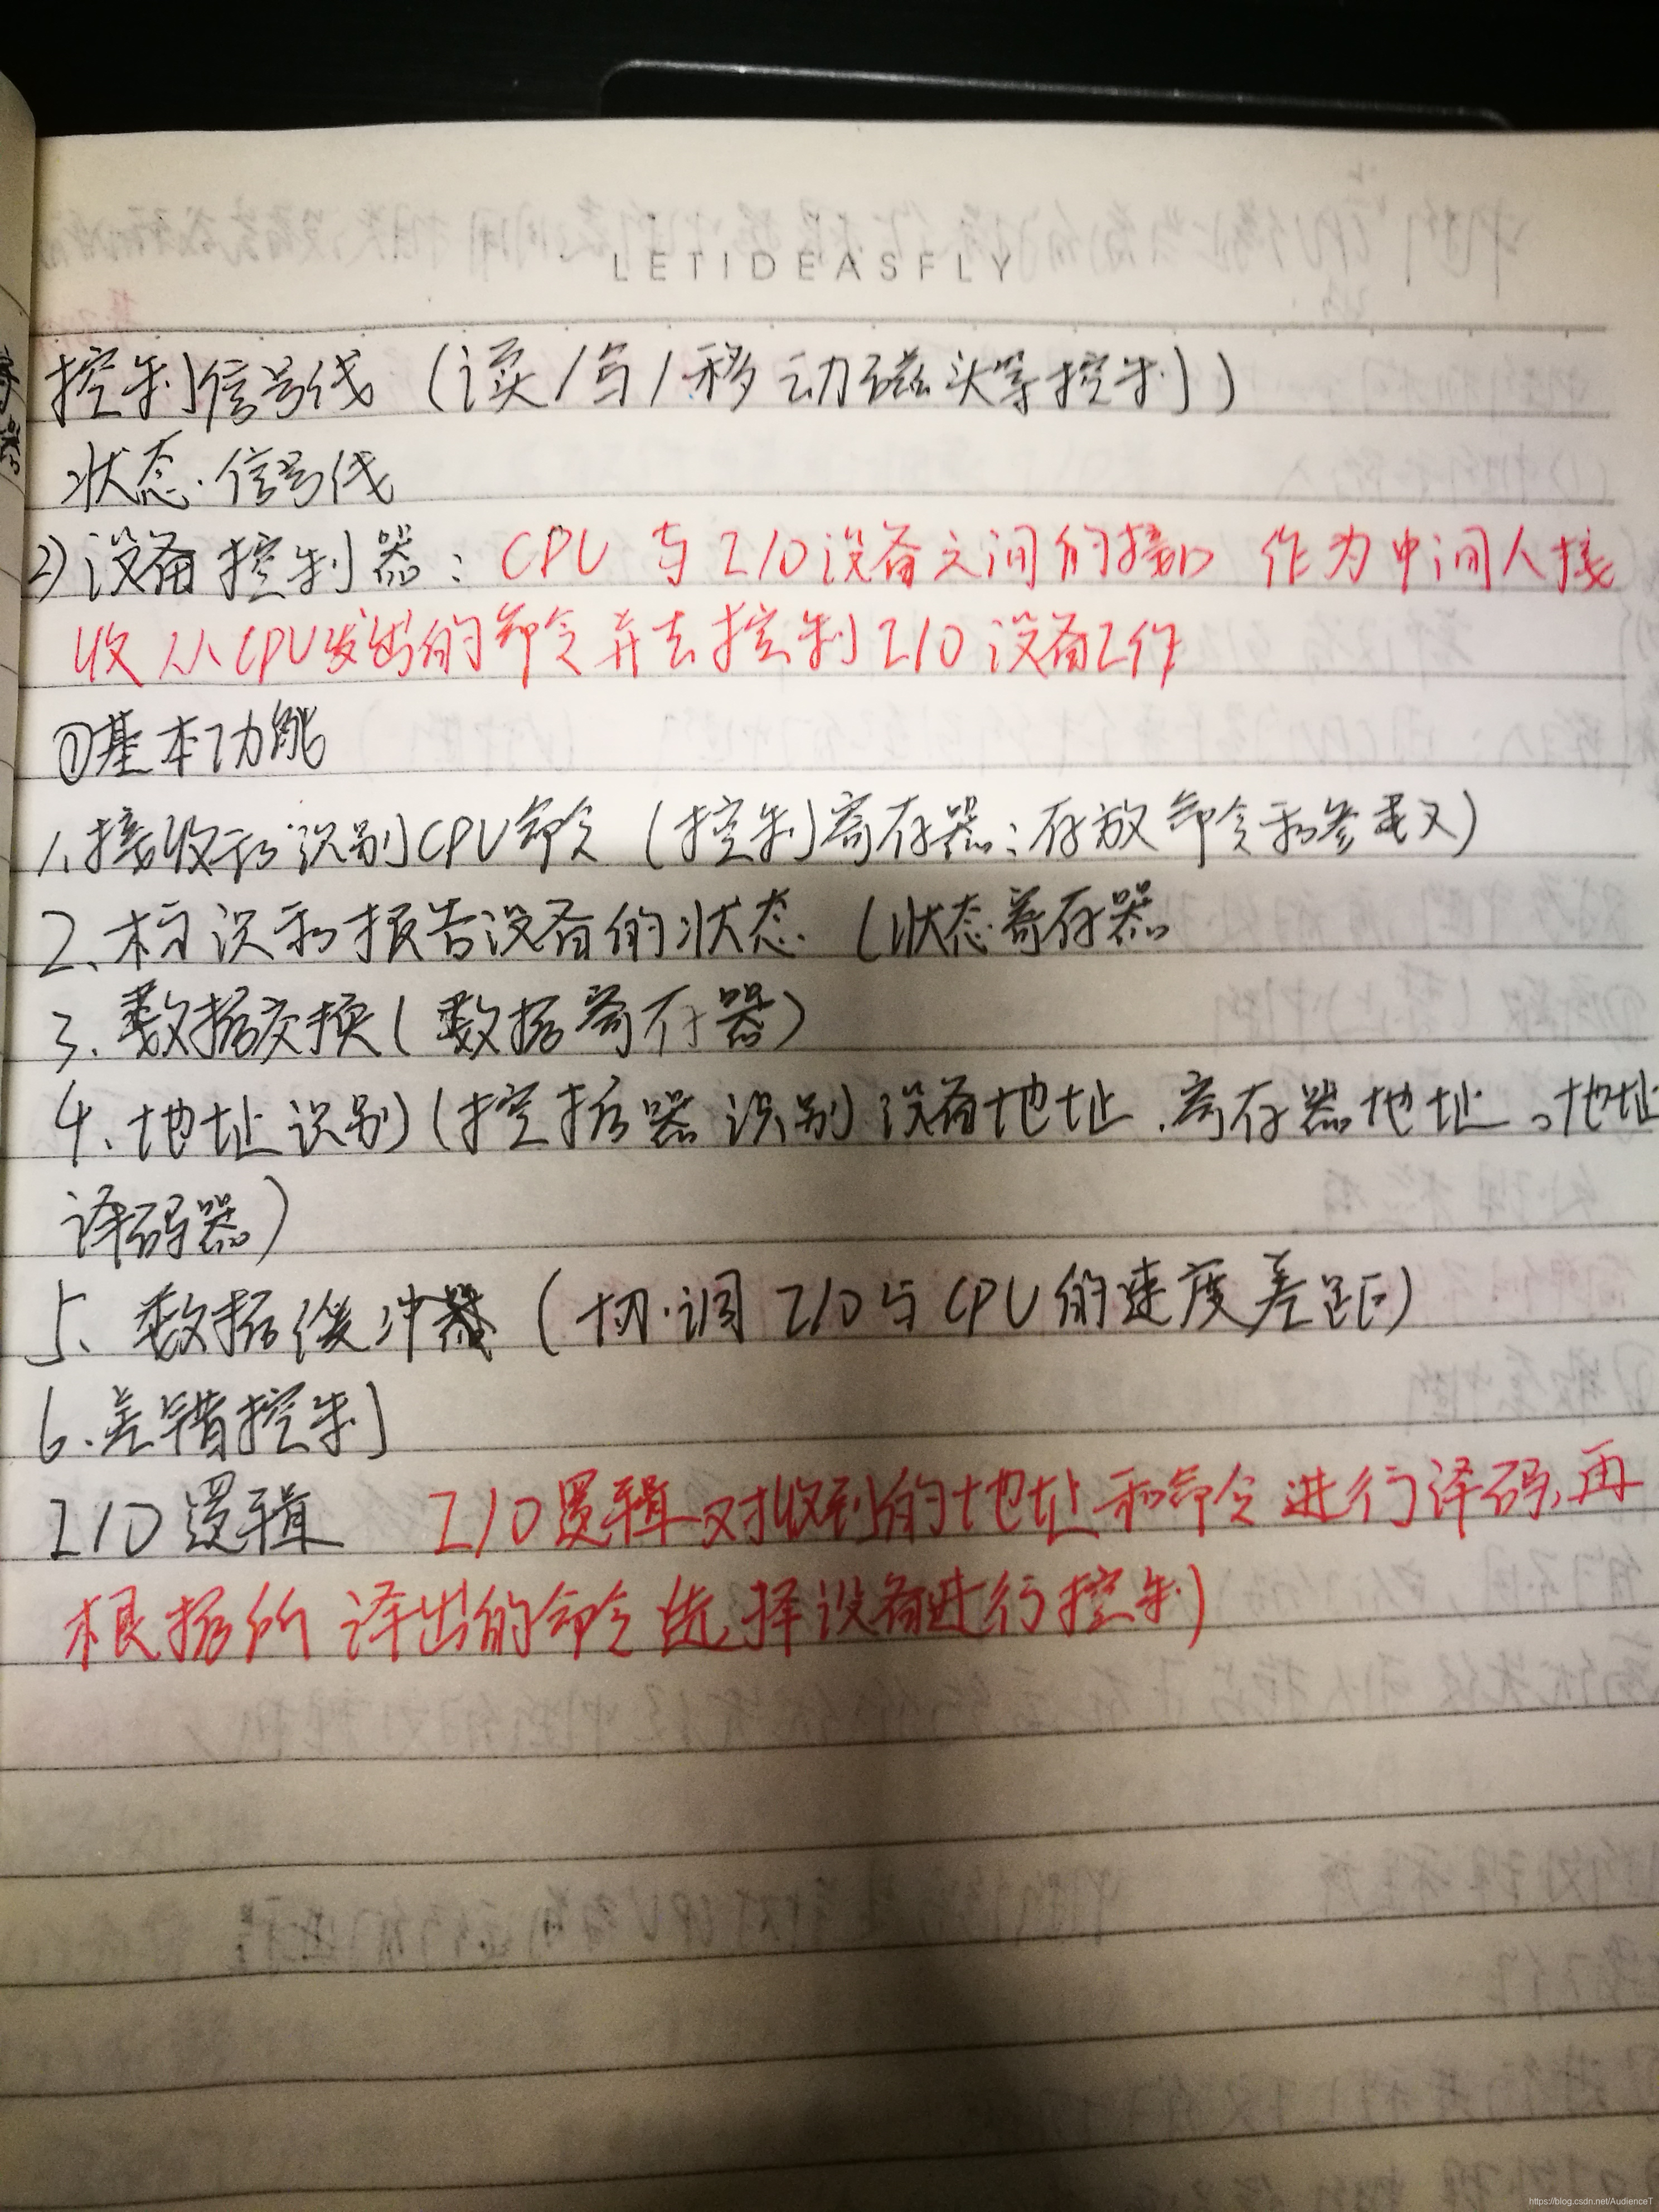 LETIDEASFLY
控制信号线（读/写/移动磁头等控制）
状态信号线
2)设备控制器：CPU 与I/O设备之间的接口 作为中间人接
收从CPU发出的命令并去控制I/O设备工作
①基本功能
1.接收和识别CPU命令（控制寄存器：存放命令和参数）
2、标识和报告设备的状态（状态寄存器
3、数据交换（数据寄存器）
4、地址识别（控据器识别设备地址、寄存器地址。地址
译码器）
5、数据缓冲器（切调I/O与CPU的速度差距）
6.差错控制
I/O逻辑 I/O逻辑对收到的地址和命令进行译码，再
根据所译出的命令选择设备进行控制
https://blog.csdn.net/AudienceT